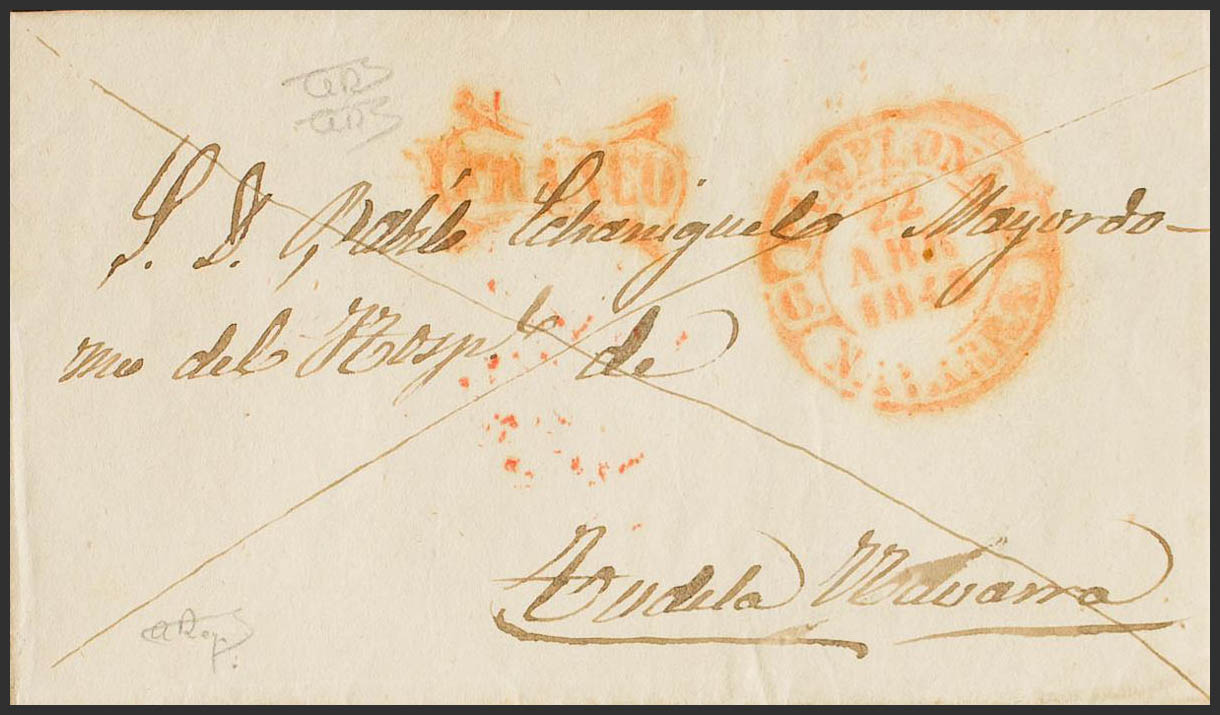 FRANCO
PAMPLONA
22
ABR
184
NAVARRA
S. D. Pablo Echaniguel Mayordo-
mo del Hosp.l de
Tudela Navarra